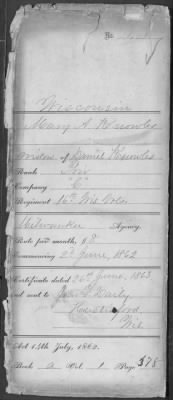 No.
Wisconsin
Mary A. Knowles
widow of Daniel Knowles
Rank
Company "C"
Regiment 16th Wis Vols
Milwaukee Agency.
Rate per month, $8
Commencing 2d June, 1862
Certificate dated 20th June, 1863
and sent to
Wis
Act 14th July, 1862.
Book A Vol. 1 Page 378